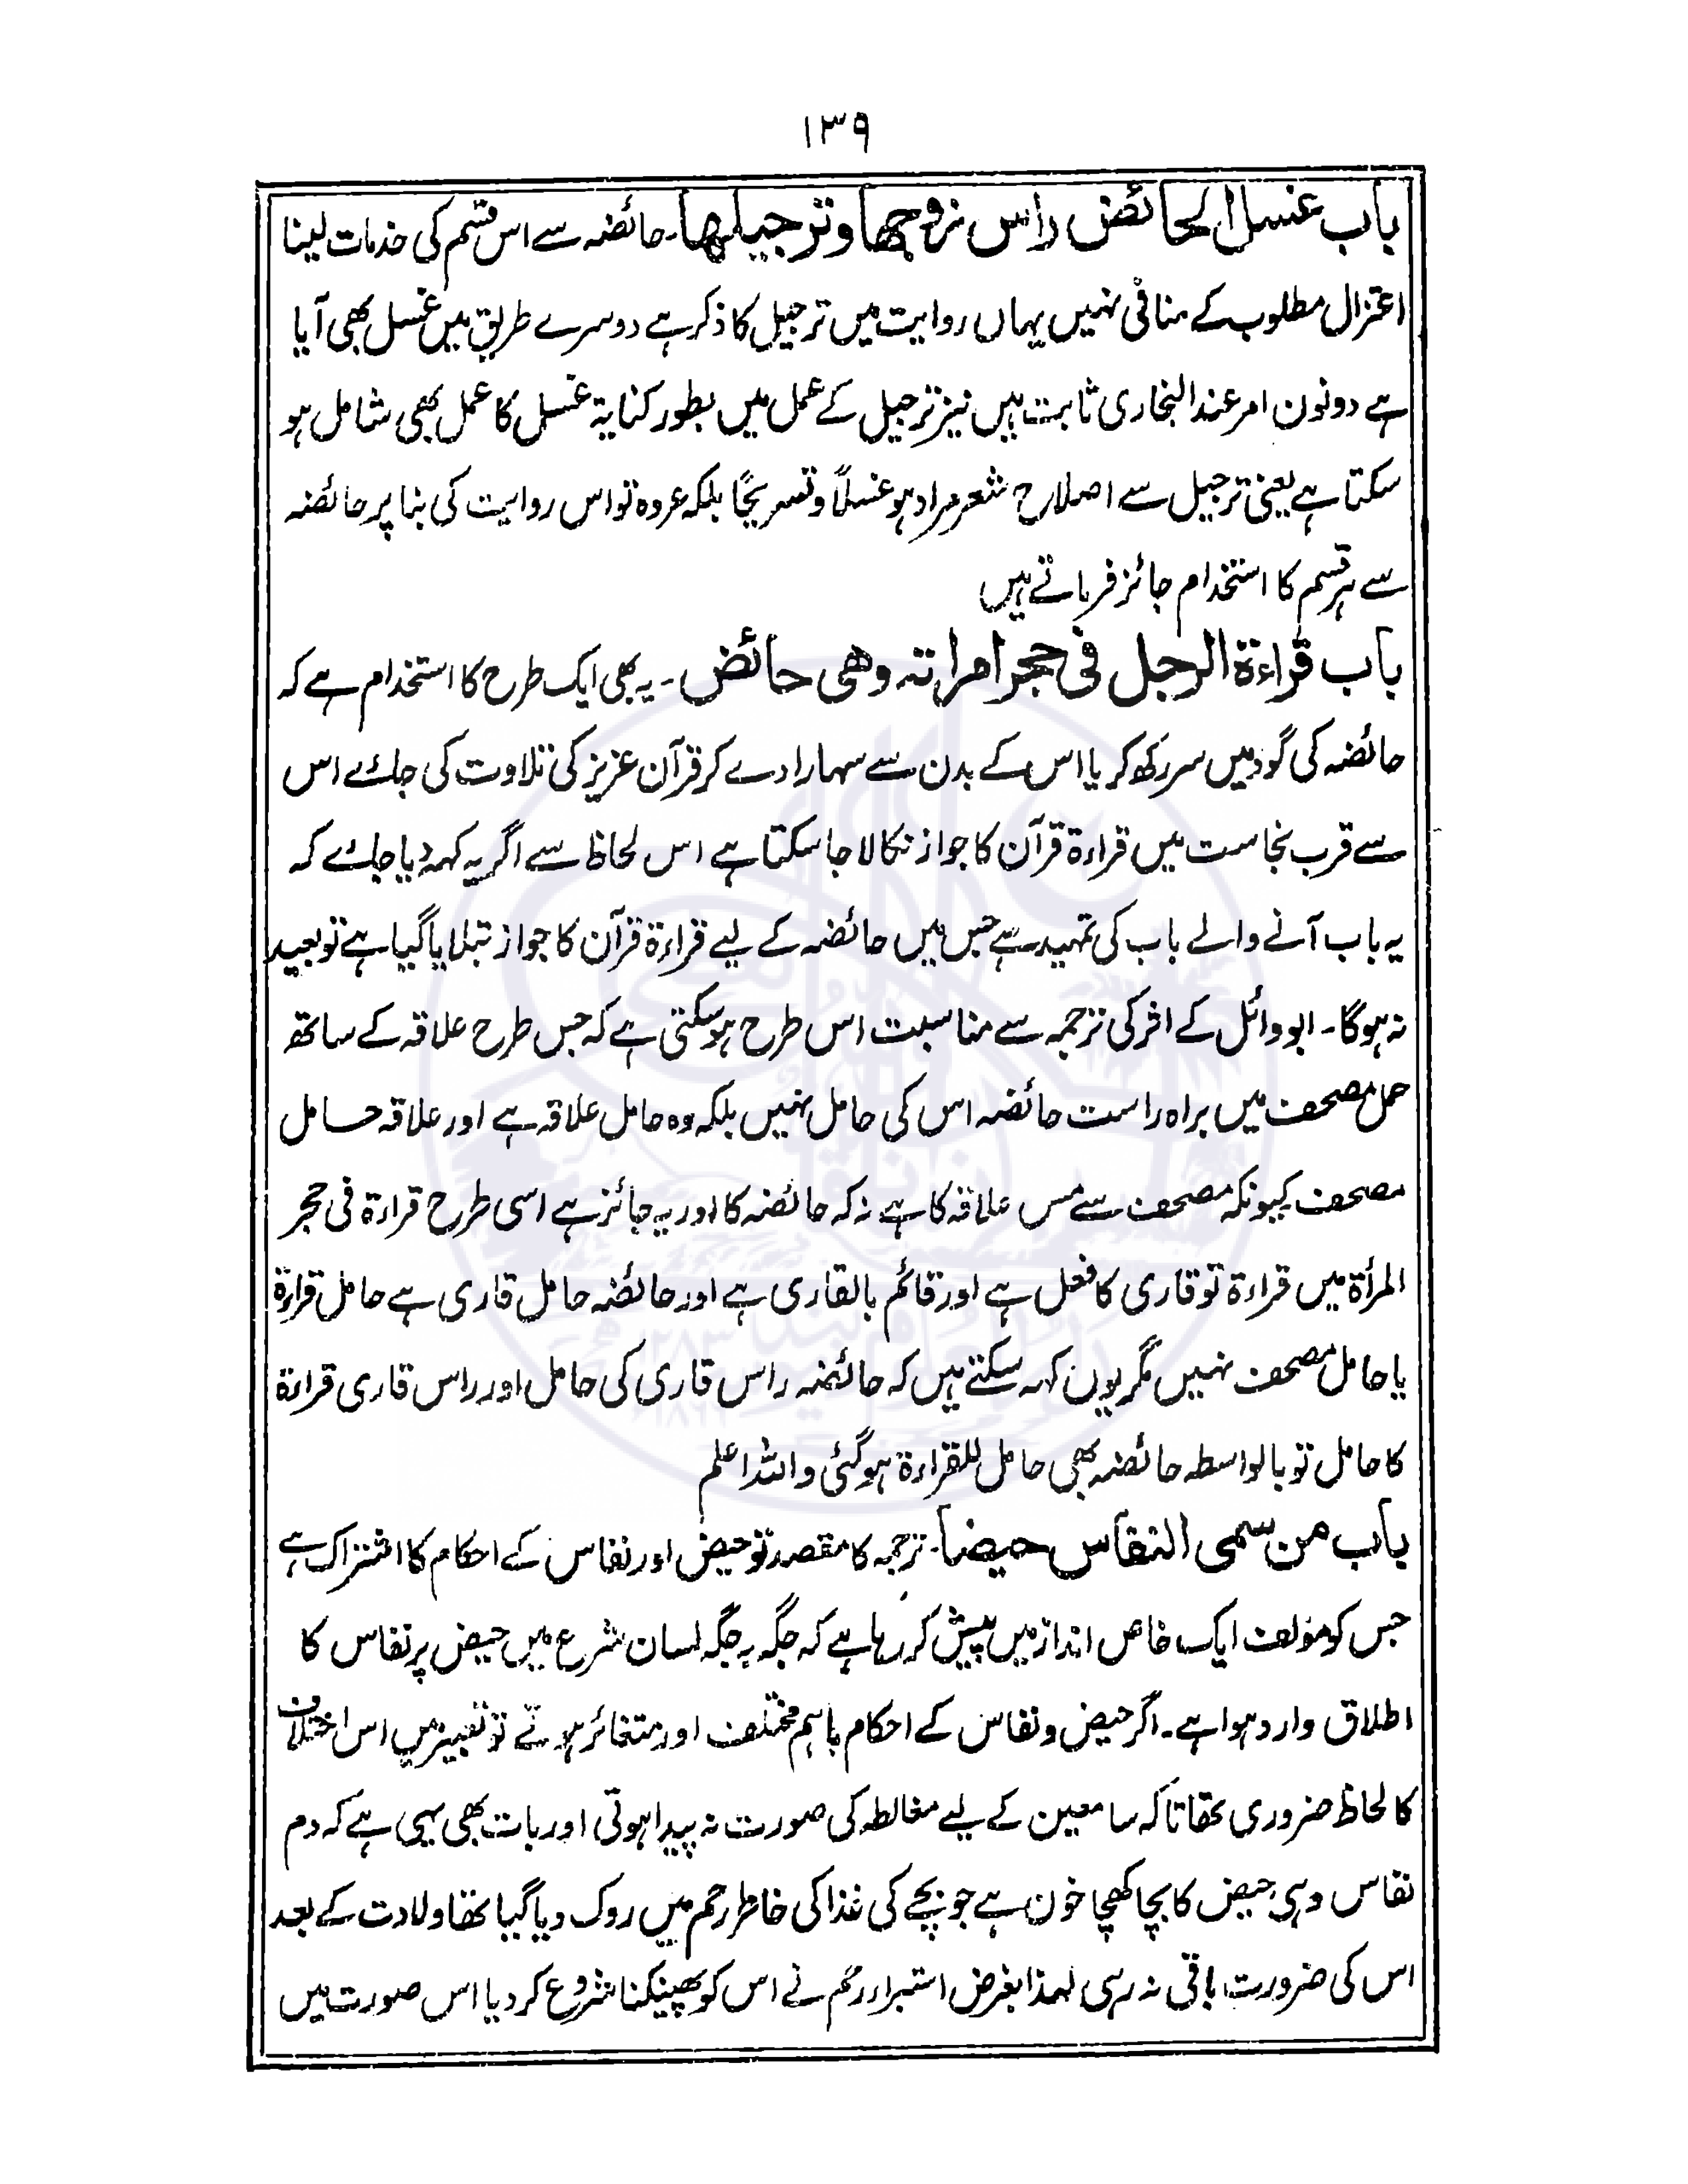 ۱۳۹
باب غسل الحائض راس زوجها وترجیلها۔ حائضہ سے اس قسم کی خدمات لینا
اعتزال مطلوب کے منافی نہیں یہاں روایت میں ترجیل کا ذکر ہے دوسرے طریق میں غسل بھی آیا
ہے دونوں امر عند البخاری ثابت ہیں نیز ترجیل کے عمل میں بطور کنایۃ غسل کا عمل بھی شامل ہو
سکتا ہے یعنی ترجیل سے اصلاح شعر مراد ہو غسلاً و تسریحًا بلکہ عروہ تو اس روایت کی بنا پر حائضہ
سے ہر قسم کا استخدام جائز فرماتے ہیں
باب قراءة الرجل فی حجر امراته وهی حائض۔ یہ بھی ایک طرح کا استخدام ہے کہ
حائضہ کی گود میں سر رکھ کر یا اس کے بدن سے سہارا دے کر قرآن عزیز کی تلاوت کی جائے اس
سے قرب نجاست میں قراءۃ قرآن کا جواز نکالا جا سکتا ہے اس لحاظ سے اگر یہ کہہ دیا جائے کہ
یہ باب آنے والے باب کی تمہید ہے جس میں حائضہ کے لیے قراءۃ قرآن کا جواز بتلایا گیا ہے تو بعید
نہ ہوگا۔ ابو وائل کے اثر کی ترجمہ سے مناسبت اس طرح ہو سکتی ہے کہ جس طرح علاقہ کے ساتھ
حمل مصحف میں براہ راست حائضہ اس کی حامل نہیں بلکہ وہ حامل علاقہ ہے اور علاقہ حامل
مصحف کیونکہ مصحف سے مس علاقہ کا ہے نہ کہ حائضہ کا اور یہ جائز ہے اسی طرح قراءۃ فی حجر
المرأۃ میں قراءۃ تو قاری کا فعل ہے اور قائم بالقاری ہے اور حائضہ حامل قاری ہے حامل قراءۃ
یا حامل مصحف نہیں مگر یوں کہہ سکتے ہیں کہ حائضہ راس قاری کی حامل اور راس قاری قراءۃ
کا حامل تو بالواسطہ حائضہ بھی حامل للقراءۃ ہو گئی واللہ اعلم
باب من سمی النفاس حیضا۔ ترجمہ کا مقصد تو حیض اور نفاس کے احکام کا اشتراک ہے
جس کو مؤلف ایک خاص انداز میں پیش کر رہا ہے کہ جگہ بہ جگہ لسان شرع میں حیض پر نفاس کا
اطلاق وارد ہوا ہے۔ اگر حیض و نفاس کے احکام باہم مختلف اور متغائر ہوتے تو تعبیر میں اس اختلاف
کا لحاظ ضروری تھا تاکہ سامعین کے لیے مغالطہ کی صورت نہ پیدا ہوتی اور بات بھی یہی ہے کہ دم
نفاس وہی حیض کا بچا کھچا خون ہے جو بچے کی غذا کی خاطر رحم میں روک دیا گیا تھا ولادت کے بعد
اس کی ضرورت باقی نہ رہی لہذا بغرض استبراء رحم نے اس کو پھینکنا شروع کر دیا اس صورت میں